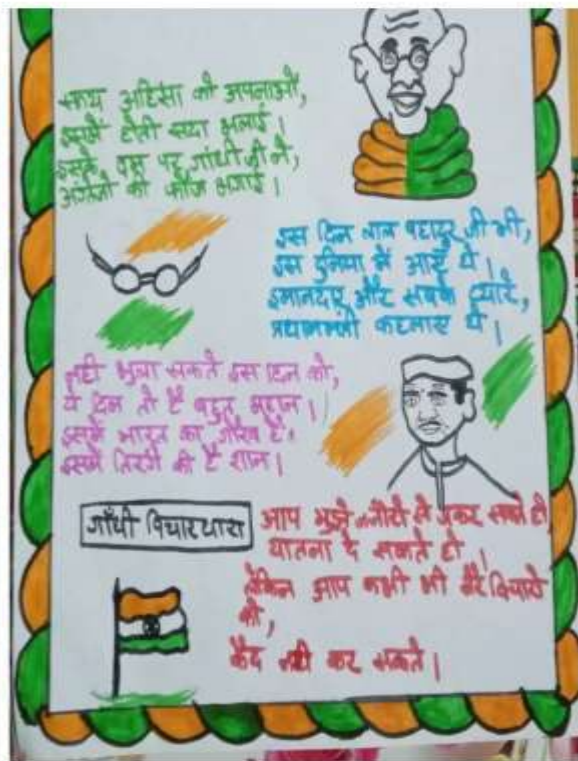 सत्य अहिंसा को अपनाओ,
इसमें होती सदा भलाई।
इसके दम पर गांधी जी ने,
अंग्रेजों की फौज भगाई।
इस दिन लाल बहादुर जी भी,
इस दुनिया में आए थे।
इमानदार और सबके प्यारे,
प्रधानमंत्री कहलाए थे।
नही भुला सकते इस दिन को,
ये दिन तो है बहुत महान।
इसमें भारत का गौरव है,
इसमें तिरंगे की है शान।
गाँधी विचारधारा
आप मुझे जंजीरो में जकर सकते हो,
यातना दे सकते हो,
लेकिन आप कभी भी मेरे विचारो
को,
कैद नही कर सकते।